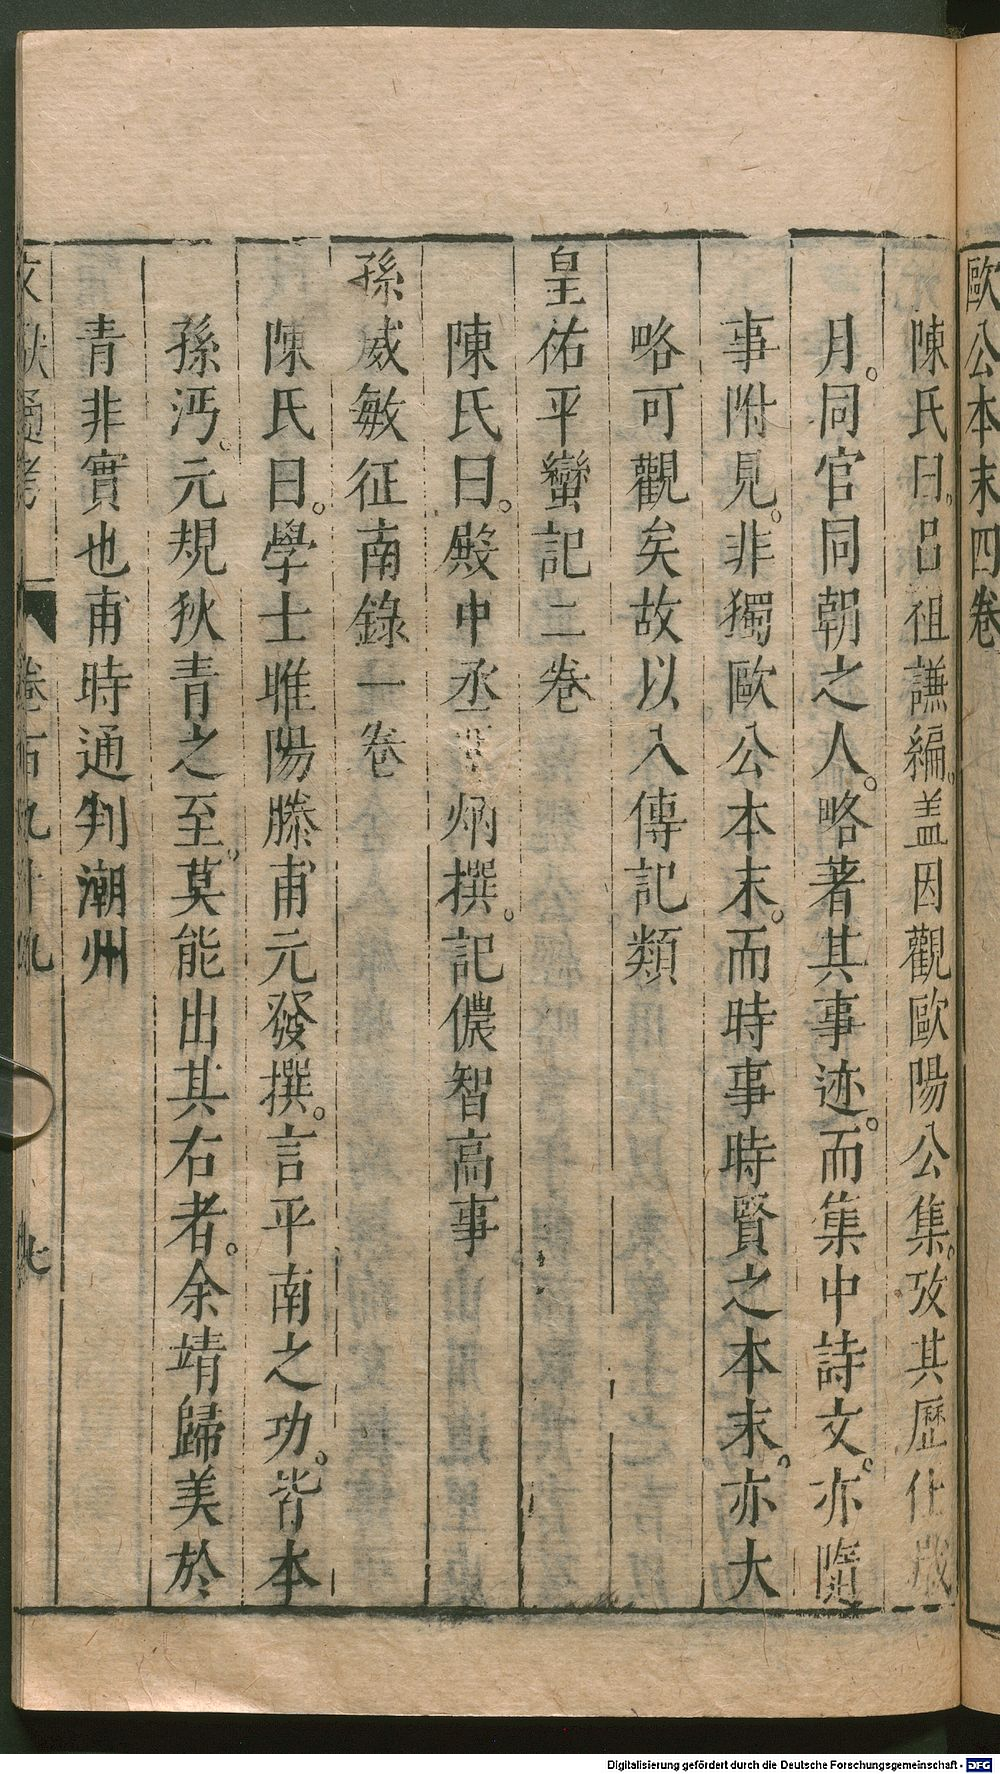 歐公本末四卷
陳氏曰。呂祖謙編。盖因觀歐陽公集。攷其歷仕歲
月。同官同朝之人。略著其事迹。而集中詩文。亦隨
事附見。非獨歐公本末。而時事時賢之本末。亦大
略可觀矣故以入傳記類
皇佑平蠻記二卷
陳氏曰。殿中丞炳撰。記儂智高事
孫威敏征南錄一卷
陳氏曰。學士睢陽滕甫元發撰。言平南之功。皆本
孫沔。元規狄青之至。莫能出其右者。余靖歸美於
青非實也甫時通判潮州
文獻通考 卷百九十九 七
Digitalisierung gefördert durch die Deutsche Forschungsgemeinschaft - DFG